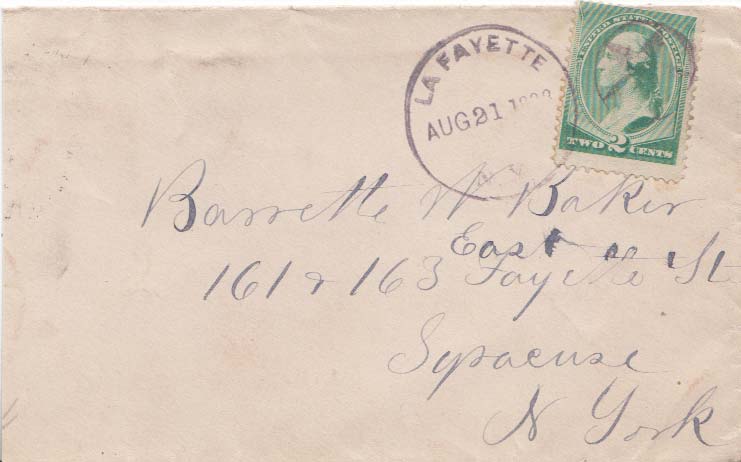 LA FAYETTE
AUG 21
N.Y.
UNITED STATES POSTAGE
TWO 2 CENTS
Barrette W Baker
East
161 & 163 Fayette St
Syracuse
N York